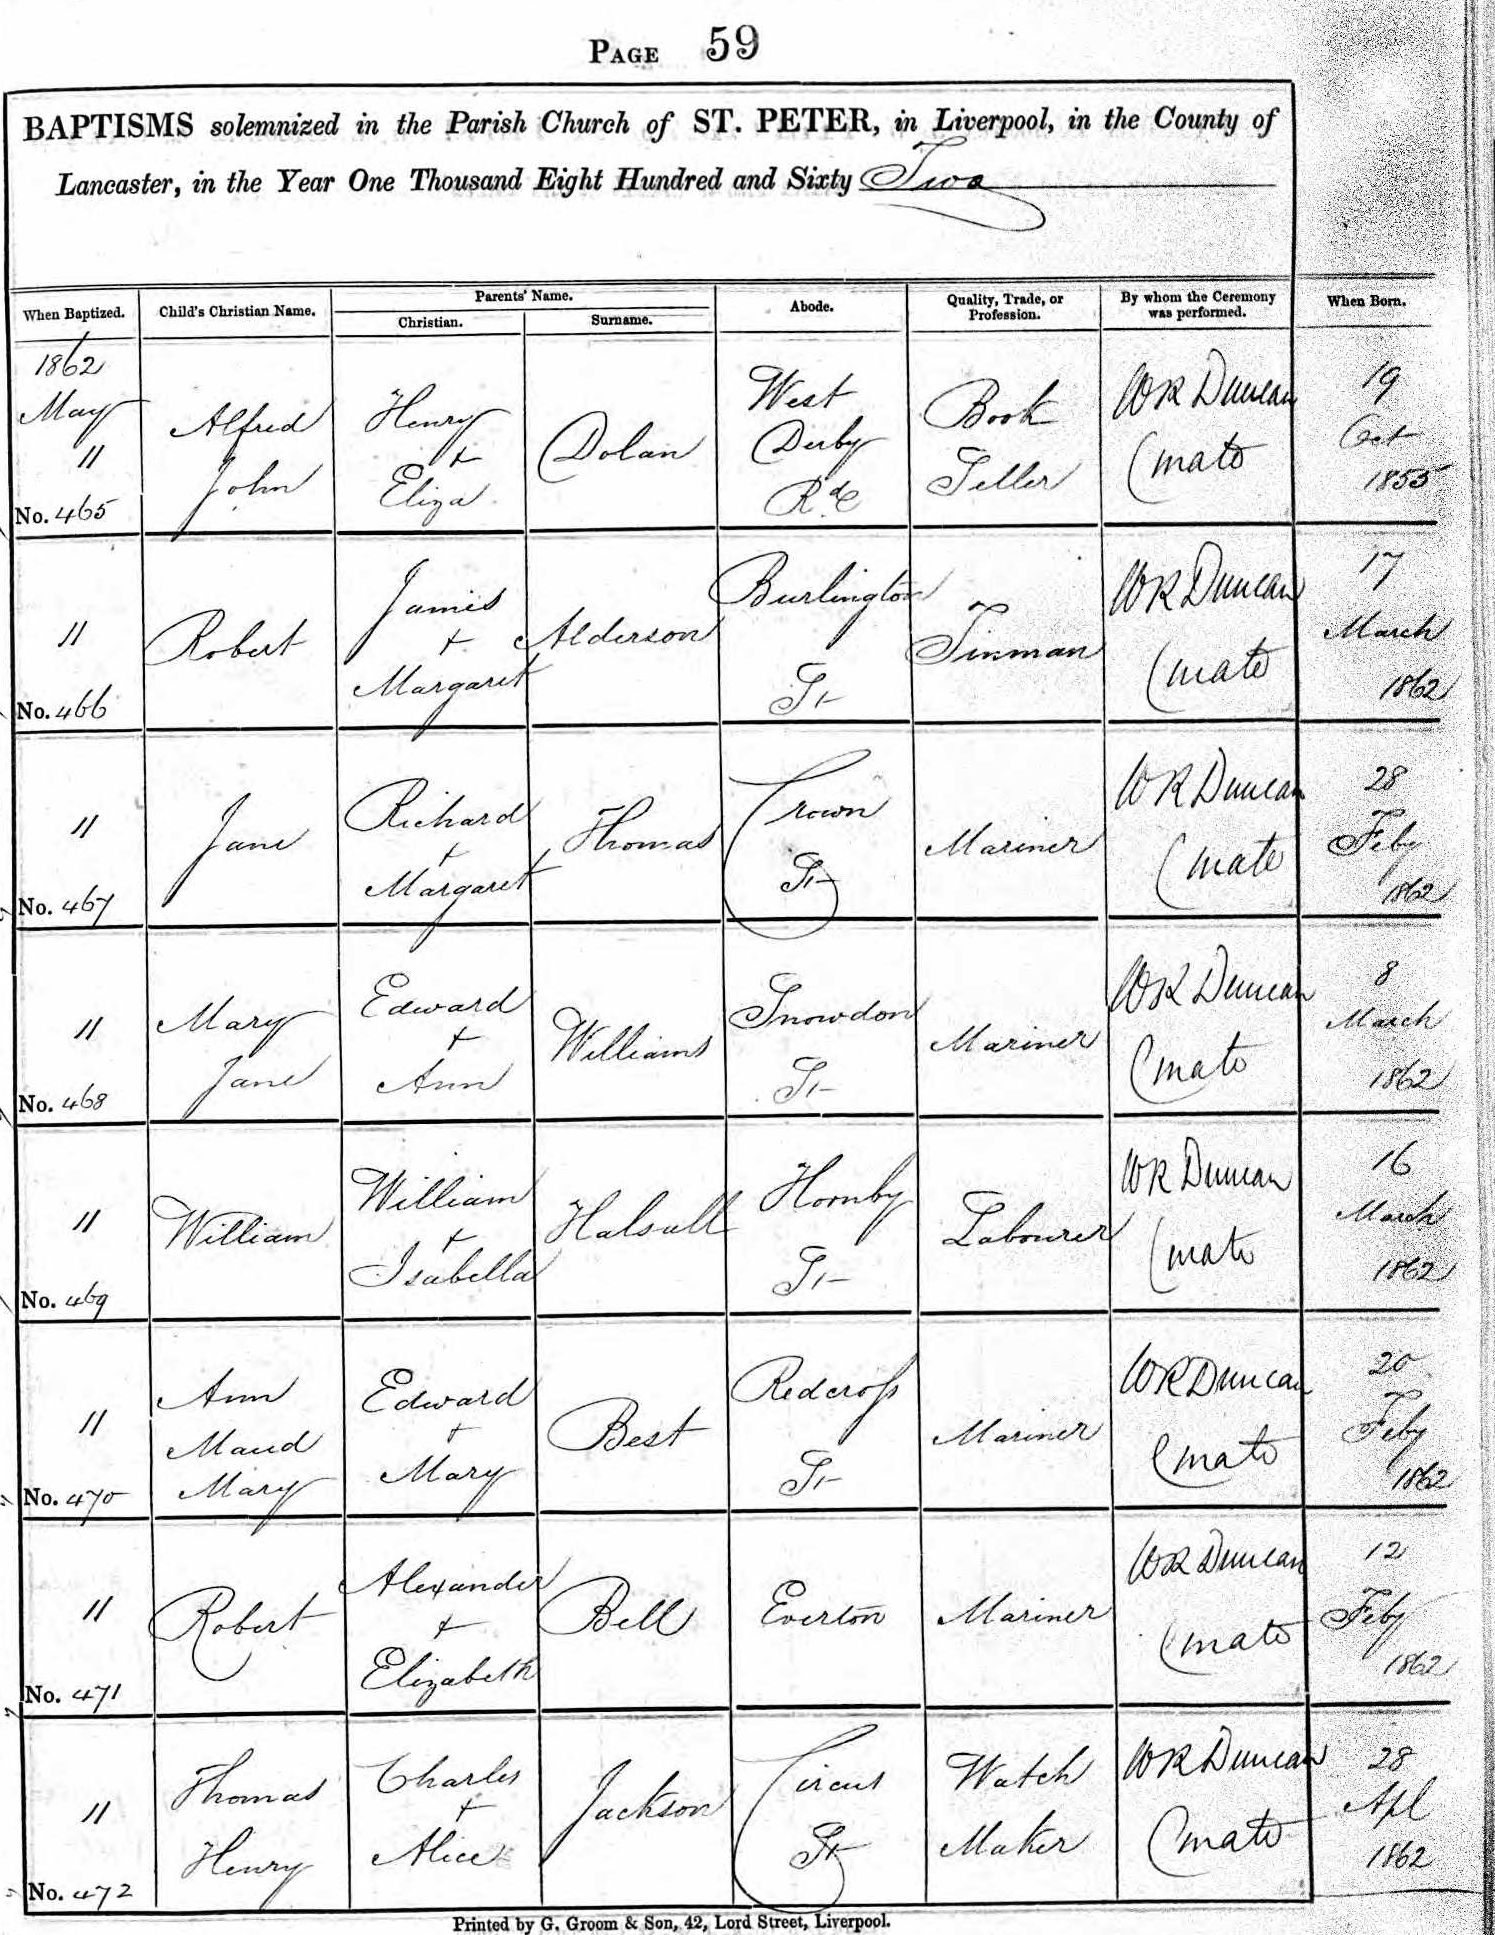 PAGE 59
BAPTISMS solemnized in the Parish Church of ST. PETER, in Liverpool, in the County of
Lancaster, in the Year One Thousand Eight Hundred and Sixty Two
When Baptized.
Child's Christian Name.
Parents' Name.
Christian.
Surname.
Abode.
Quality, Trade, or
Profession.
By whom the Ceremony
was performed.
When Born.
1862
May
11
No. 465
Alfred
John
Henry
+
Eliza
Dolan
West
Derby
Rd
Book
Seller
WR Duncan
Curate
19
Oct
1855
11
No. 466
Robert
James
+
Margaret
Alderson
Burlington
St
Tinman
WR Duncan
Curate
17
March
1862
11
No. 467
Jane
Richard
+
Margaret
Thomas
Crown
St
Mariner
WR Duncan
Curate
28
Feby
1862
11
No. 468
Mary
Jane
Edward
+
Ann
Williams
Snowdon
St
Mariner
WR Duncan
Curate
8
March
1862
11
No. 469
William
William
+
Isabella
Halsall
Hornby
St
Labourer
WR Duncan
Curate
16
March
1862
11
No. 470
Ann
Maud
Mary
Edward
+
Mary
Best
Redcross
St
Mariner
WR Duncan
Curate
20
Feby
1862
11
No. 471
Robert
Alexander
+
Elizabeth
Bell
Everton
Mariner
WR Duncan
Curate
12
Feby
1862
11
No. 472
Thomas
Henry
Charles
+
Alice
Jackson
Circus
St
Watch
Maker
WR Duncan
Curate
28
Apl
1862
Printed by G. Groom & Son, 42, Lord Street, Liverpool.